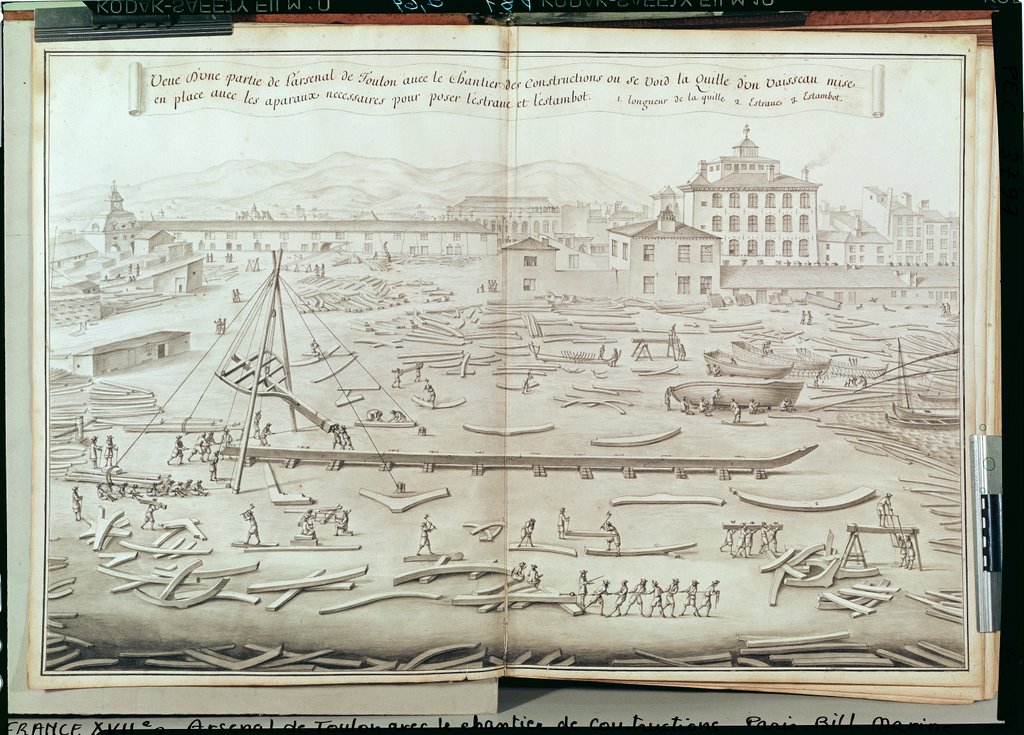 KODAK-SAFETY FILM
KODAK-SAFETY FILM
Veue d'vne partie de l'arsenal de Toulon auec le Chantier des Constructions ou se void la Quille d'vn Vaisseau mise,
en place auec les aparaux necessaires pour poser l'estraue et l'estambot. 1. longueur de la quille 2. Estraue, 3. Estambot.
FRANCE XVIIe s Arsenal de Toulon avec le chantier de constructions. Paris Bibl. Marine